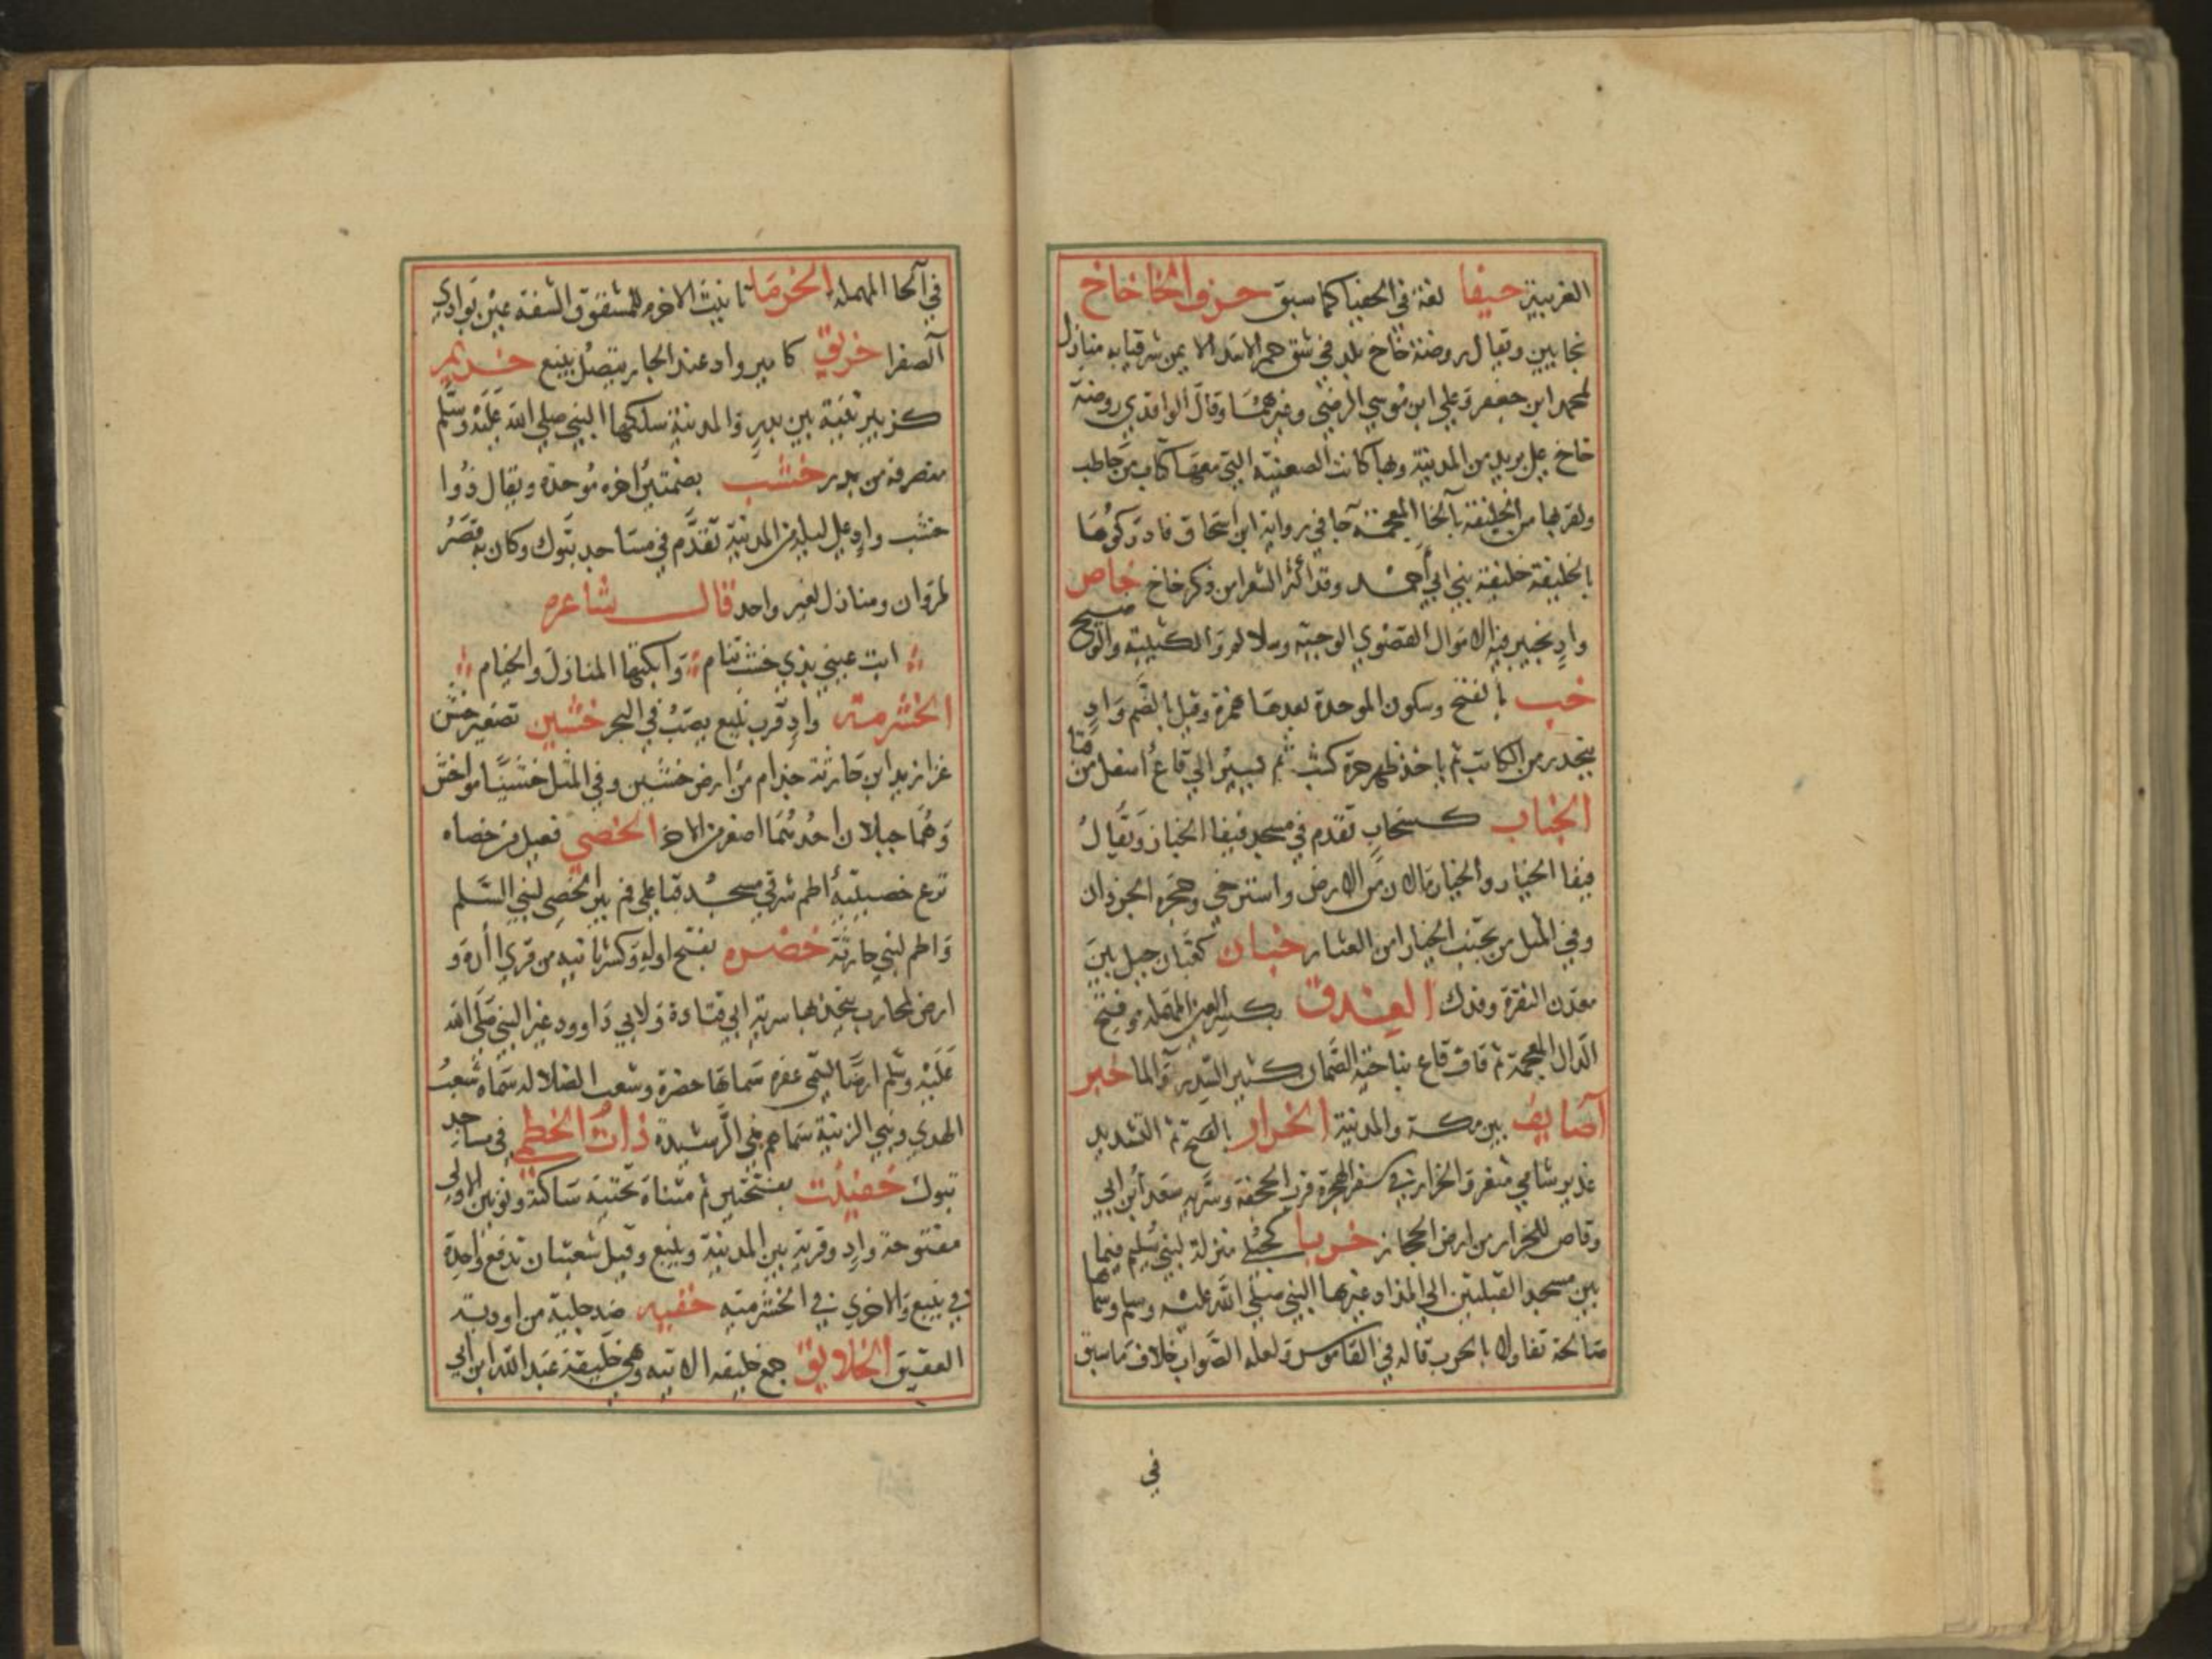 الغربية حيفا لغة في الحفيا كما سبق حرف الخا خاخ
بخايين ويقال روضة خاخ بلد في شق حمرا الاسد الايمن شرقيا به منازل
لمحمد ابن جعفر وعلي ابن موسي الرضي وغيرهما وقال الواقدي روضة
خاخ علي بريد من المدينة وبها كانت الصعينة التي معها كتاب من حاطب
ولقربها من الخليقة بالخا المعجمة جا في رواية ابن اسحاق فادركوها
بالخليقة خليقة بني ابي احمد وقد اكثر الشعرا من ذكر خاخ خاص
واد بخيبر فيه الاموال القصوي الوجيه وسلالم والكتيبة والوطيح
خب بالفتح وسكون الموحدة بعدها همزة وقيل بالضم واد
ينحدر من الكاتب ثم ياخذ ظهر حرة كشب ثم يسير الي قاع اسفل من قبا
الخباب كسحاب تقدم في مسجد فيفا الخبار ويقال
فيفا الخبار والخبار ما لان من الارض واسترخي وحجره الجرذان
وفي المثل من تجنب الخبار امن العثار خبان كعبان جبل بين
معدن النقرة وفدك العذق بكسر العين المهملة وفتح
الدال المعجمة ثم قاف قاع بناحية الصمان كثير السدر والما خبر
اصايف بين مكة والمدينة الخرار بالفتح ثم التشديد
غدير شامي مثغر والخرار في سفر الهجرة قرب الجحفة وسرية سعد ابن ابي
وقاص للخرار من ارض الحجاز خربا كحبلي منزلة لبني سلم فيما
بين مسجد القبلتين الي المذاد غيرها النبي صلي الله عليه وسلم وسماها
صالحة تفاولا بالحرب قاله في القاموس ولعله الصواب خلاف ما سبق
في
في الحا المهملة الخرما تانيث الاخرم للمشقوق الشفة عين بوادي
الصفرا خريق كامير واد عند الجار يتصل بينبع خريم
كزبير ثنية بين بدر والمدينة سلكها النبي صلي الله عليه وسلم
منصرفه من بدر خشب بضمتين اخره موحدة ويقال ذوا
خشب واد علي ليلة من المدينة تقدم في مساجد تبوك وكان به قصر
لمروان ومنازل لغير واحد قال شاعره
ابت عيني بذي خشب تنام وابكتها المنازل والخيام
الخشرمة واد قرب ينبع يصب في البحر خشين تصغير خشن
غزا زيد ابن حارثة جذام من ارض خشين وفي المثل خشينا من اخشن
وهما جبلان احدهما اصغر من الاخر الخصي فعيل من خصاه
نزع خصيتيه اطم شرقي مسجد قبا علي فم بير الخصي لبني السلم
واطم لبني حارثة خضره بفتح اوله وكسر ثانيه من قري اارة و
ارض لمحارب بنجد بها سرية ابي قتادة ولابي داوود غير النبي صلي الله
عليه وسلم ارضا تسمي عفرة سماها خضرة وشعب الضلاله سماه شعب
الهدي وبني الزنية سماهم بني الرشيدة ذات الخطمي في مساجد
تبوك خفينن بفتحتين ثم مثناة تحتية ساكنة ونونين الاولي
مفتوحة واد وقرية بين المدينة وينبع وقيل شعبتان تدفع واحدة
في ينبع والاخري في الخشرمة خفيه ضد جلية من اودية
العقيق الخلايق جمع خليقه الاتية وهي خليقة عبد الله ابن ابي